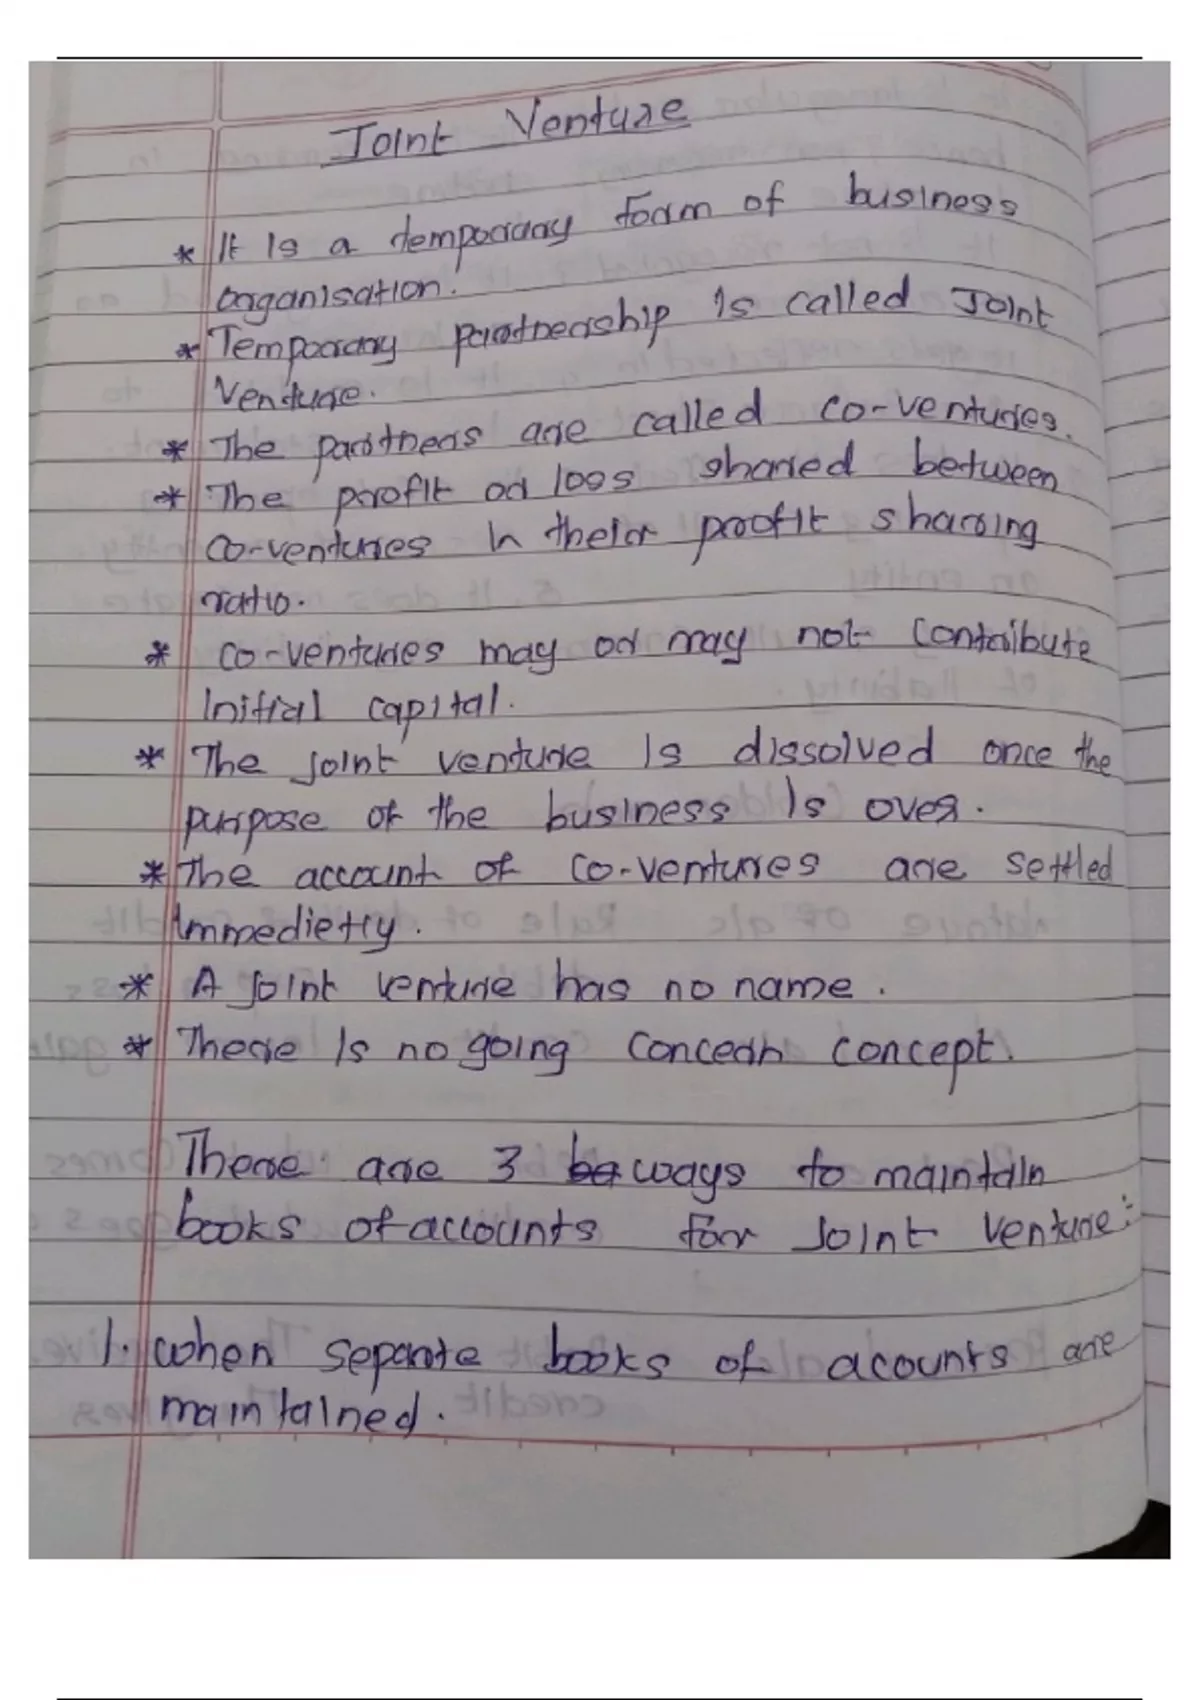 Joint Venture
* It is a temporary form of business
organisation.
* Temporary partnership is called Joint
Venture.
* The partners are called co-ventures.
* The profit or loss shared between
co-ventures in their profit sharing
ratio.
* co-ventures may or may not contribute
initial capital.
* The joint venture is dissolved once the
purpose of the business is over.
* The account of co-ventures are settled
immedietly.
* A joint venture has no name.
* There is no going concern concept.
There are 3 ways to maintain
books of accounts for Joint Venture:
1. when separate books of acounts are
maintained.